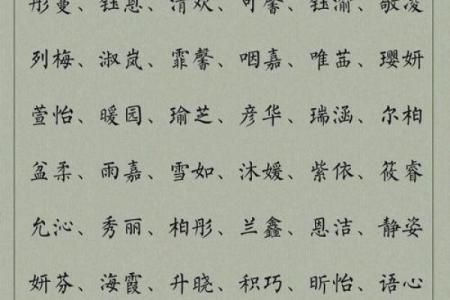 彤蔓、钰恩、清欢、可馨、钰渝、敬凌
列梅、淑岚、霏馨、咽嘉、唯茜、璎妍
萱怡、暖园、瑜芝、彦华、瑞涵、尔柏
盆柔、雨嘉、雪如、沐媛、紫依、筱睿
允沁、秀丽、柏彤、兰鑫、恩洁、静姿
妍芬、海霞、升晓、积巧、昕怡、语心